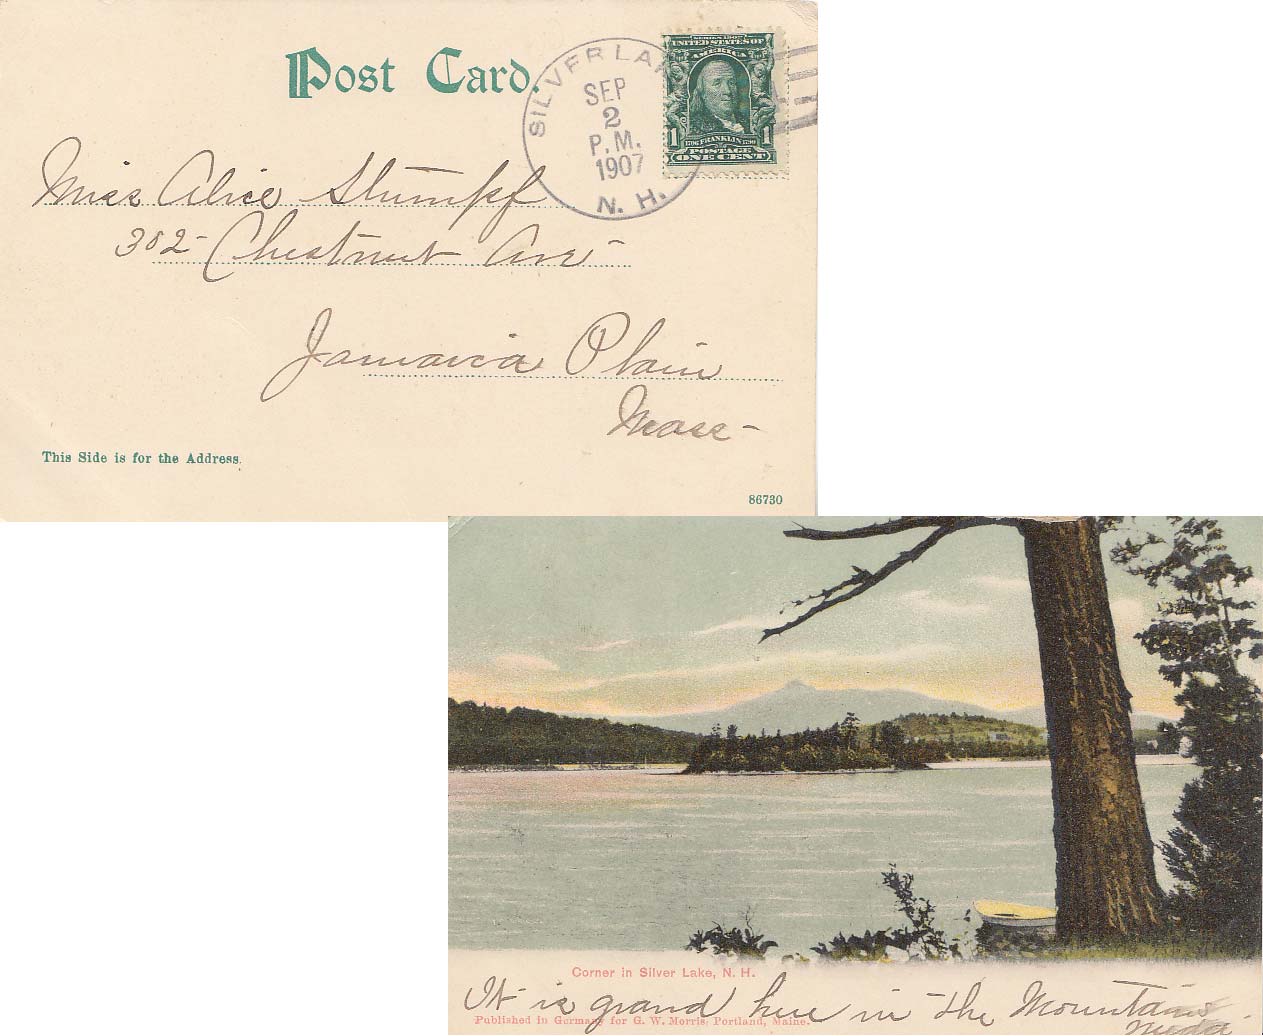 Post Card.
SILVER LAKE
SEP
2
P.M.
1907
N. H.
SERIES 1902
UNITED STATES OF
AMERICA
1 1706 FRANKLIN 1790 1
POSTAGE
ONE CENT
Miss Alice Stumpf
302- Chestnut Ave-
Jamaica Plain
Mass-
This Side is for the Address.
86730
Corner in Silver Lake, N. H.
It is grand here in the Mountains
Published in Germany for G. W. Morris, Portland, Maine.